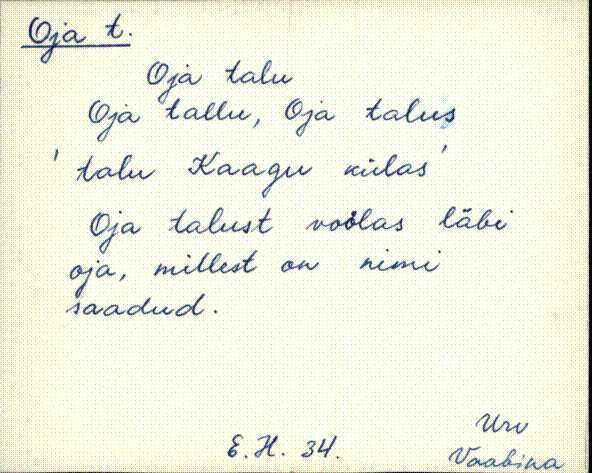 Oja t.
Oja talu
Oja tallu, Oja talus
'talu Kaagu külas'
Oja talust voolas läbi
oja, millest on nimi
saadud.
E. H. 34.
Urv
Vaabina